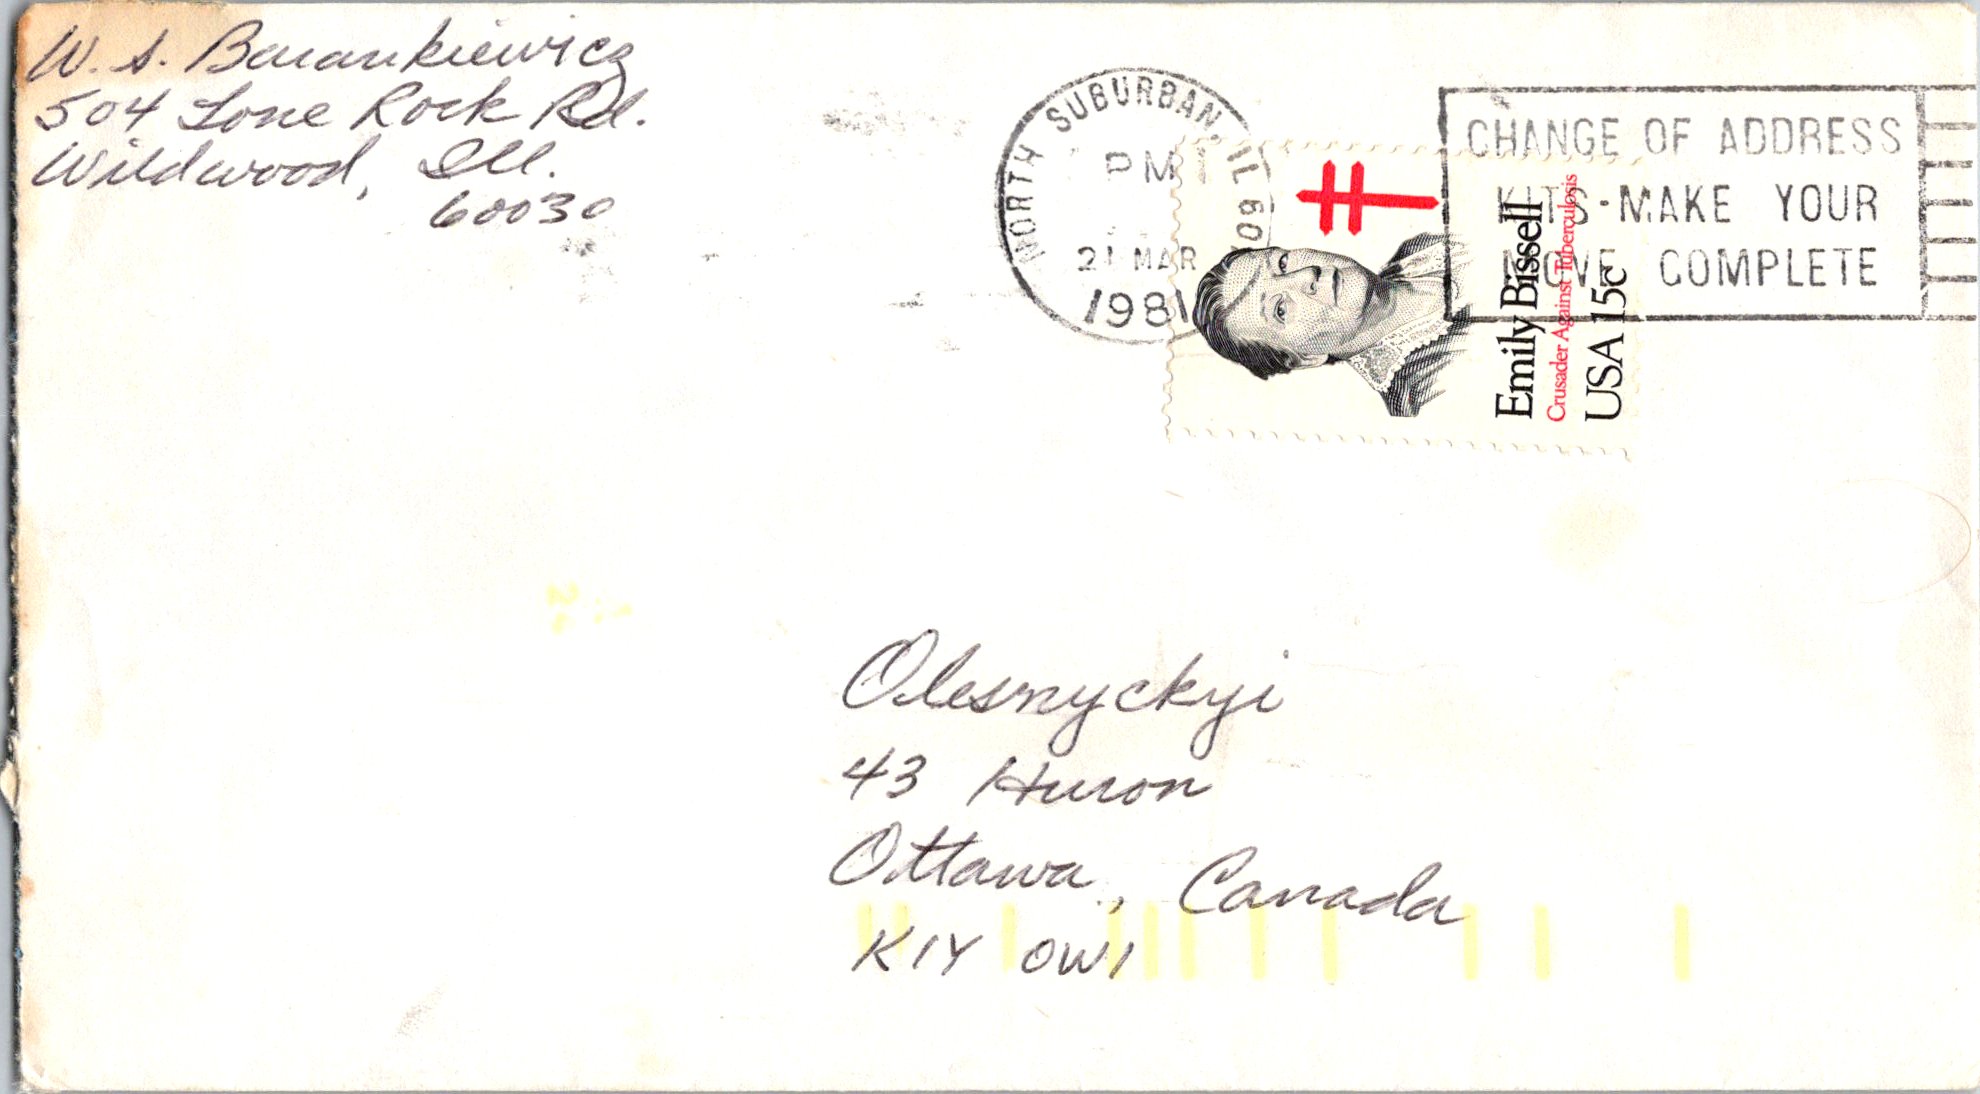 W. S. Barankiewicz
504 Lone Rock Rd.
Wildwood, Ill.
60030
NORTH SUBURBAN, IL 60
PM
21 MAR
1981
CHANGE OF ADDRESS
KITS-MAKE YOUR
MOVE COMPLETE
Emily Bissell
Crusader Against Tuberculosis
USA 15c
Olesnyckyi
43 Huron
Ottawa, Canada
K1Y 0W1